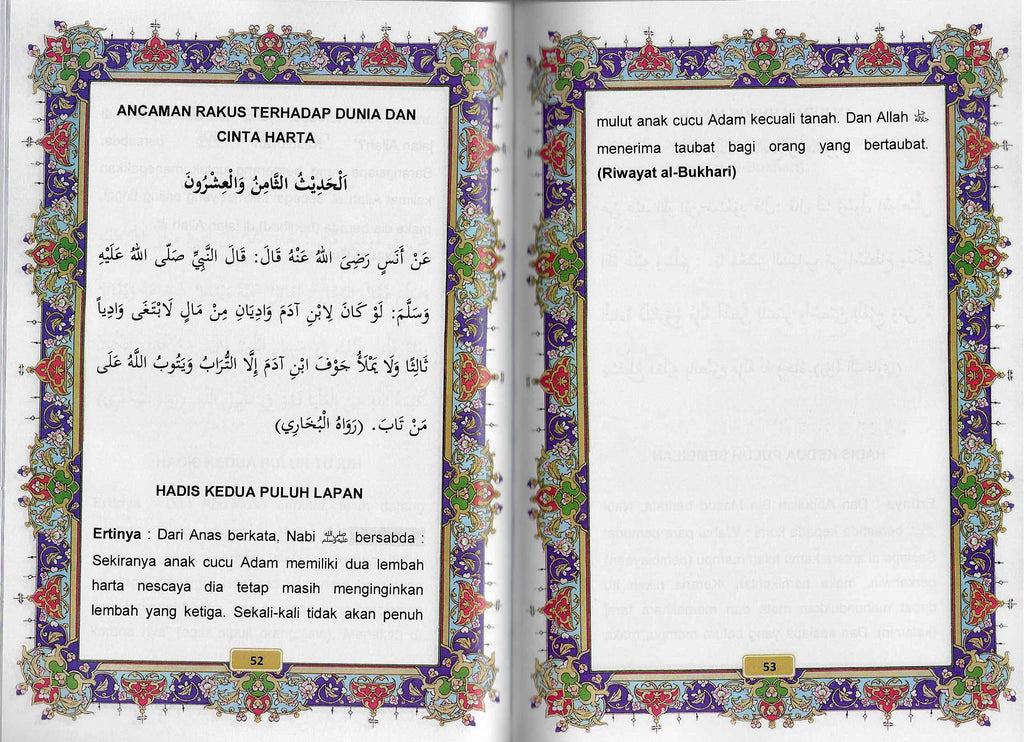 ANCAMAN RAKUS TERHADAP DUNIA DAN
CINTA HARTA
اَلْحَدِيْثُ الثَّامِنُ وَالْعِشْرُوْنَ
عَنْ أَنَسٍ رَضِىَ اللهُ عَنْهُ قَالَ: قَالَ النَّبِيِّ صَلّى اللهُ عَلَيْهِ
وَسَلَّمَ: لَوْ كَانَ لِابْنِ آدَمَ وَادِيَانِ مِنْ مَالٍ لَابْتَغَى وَادِياً
ثَالِثًا وَلَا يَمْلَأُ جَوْفَ ابْنِ آدَمَ إِلَّا التُّرَابُ وَيَتُوبُ اللَّهُ عَلَى
مَنْ تَابَ. (رَوَاهُ الْبُخَارِي)
HADIS KEDUA PULUH LAPAN
Ertinya : Dari Anas berkata, Nabi ﷺ bersabda :
Sekiranya anak cucu Adam memiliki dua lembah
harta nescaya dia tetap masih menginginkan
lembah yang ketiga. Sekali-kali tidak akan penuh
52
mulut anak cucu Adam kecuali tanah. Dan Allah ﷻ
menerima taubat bagi orang yang bertaubat.
(Riwayat al-Bukhari)
53